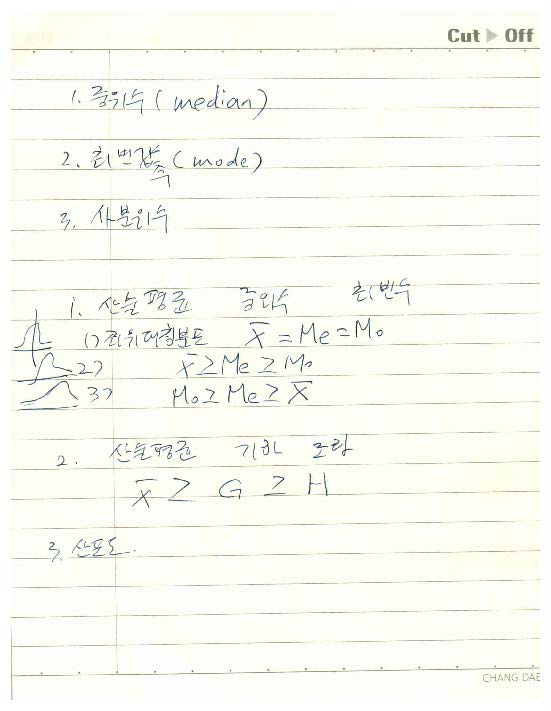 Cut ▶ Off
1. 중위수 (median)
2. 최빈값 (mode)
수
3. 사분위수
1. 산술평균 중위수 최빈수
1) 좌우대칭분포 X̄ = Me = Mo
2) X̄ ≥ Me ≥ Mo
3) Mo ≥ Me ≥ X̄
2. 산술평균 기하 조화
X̄ ≥ G ≥ H
3. 산포도.
CHANG DAE